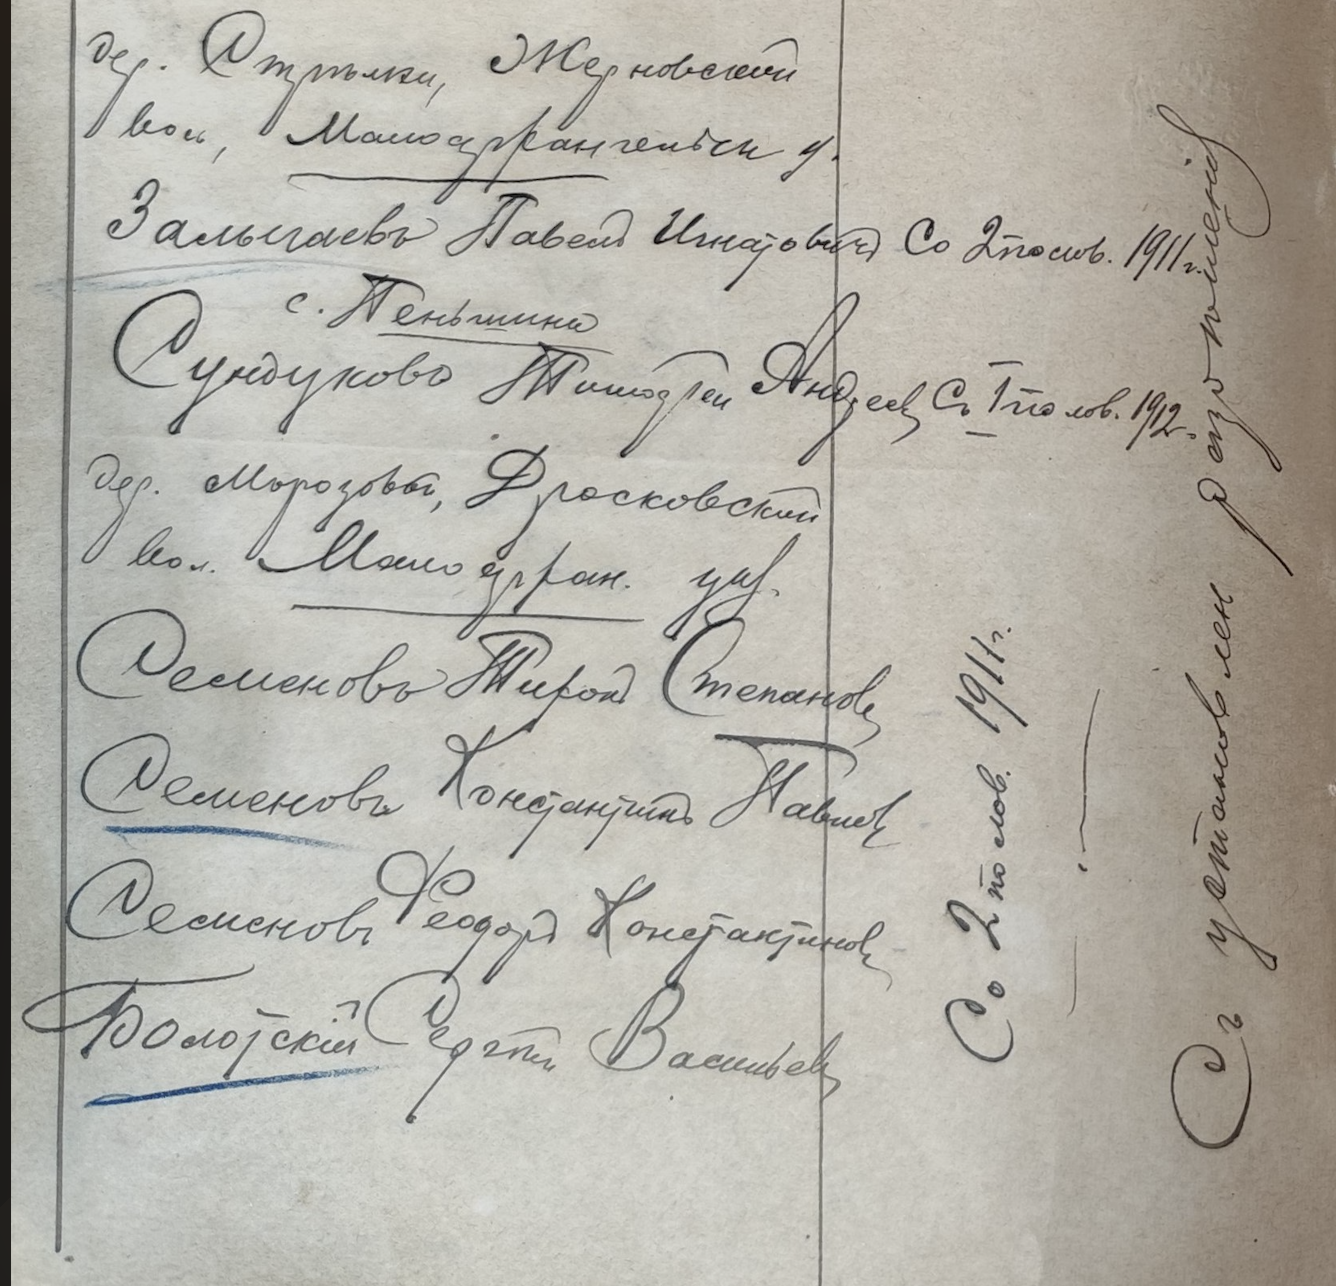 дер. Стрѣлки, Жерновский
вол., Малоархангельск у.
Залыгаевъ Павелъ Игнатовичъ Со 2 полов. 1911 г.
с. Пеньшино
Сундуковъ Тимофей Андреев Съ 1 полов. 1912.
дер. Морозовой, Дросковский
вол. Малоархан. уѣз.
Семеновъ Тихонъ Степанов
Семеновъ Константинъ Павлов
Семеновъ Феодоръ Константинов
Болотскій Сергѣй Васильев
Со 2 полов. 1911 г.
Съ установлен